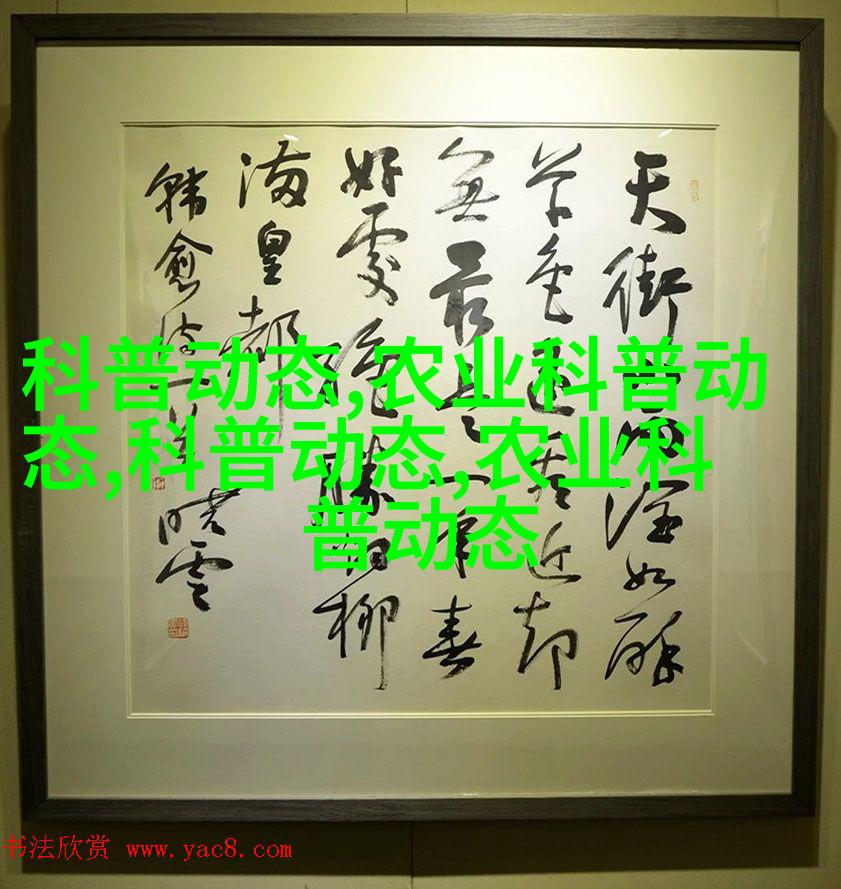 天街小雨润如酥
草色遥看近却
无最是一年春
好處绝胜烟柳
满皇都
韩愈诗一首
晓雲
科普动态,农业科普动
态,科普动态,农业科
普动态
书法欣赏 www.yac8.com